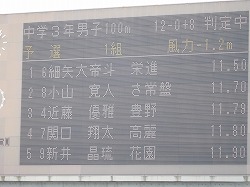 中学3年男子100m 12-0+8 判定中
予選 1組 風力-1.2m
1 6 細矢大帯斗 栄進 11.50
2 8 小山 寛人 さ常盤 11.70
3 4 近藤 優雅 豊野 11.79
4 7 関口 翔太 高麗 11.89
5 9 新井 晶琉 花園 11.90